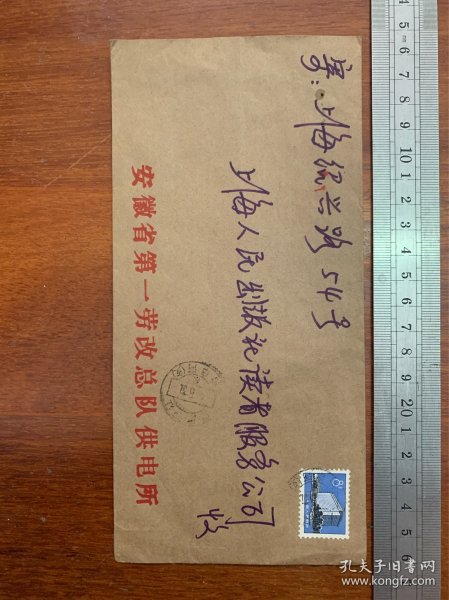 寄：上海绍兴路54号
上海人民出版社读者服务公司
收
安徽省第一劳改总队供电所
8分
4 5 6 7 8 9 10 1 2 3 4 5 6 7 8 9 20 1 2 3 4 5 6
孔夫子旧书网
www.kongfz.com